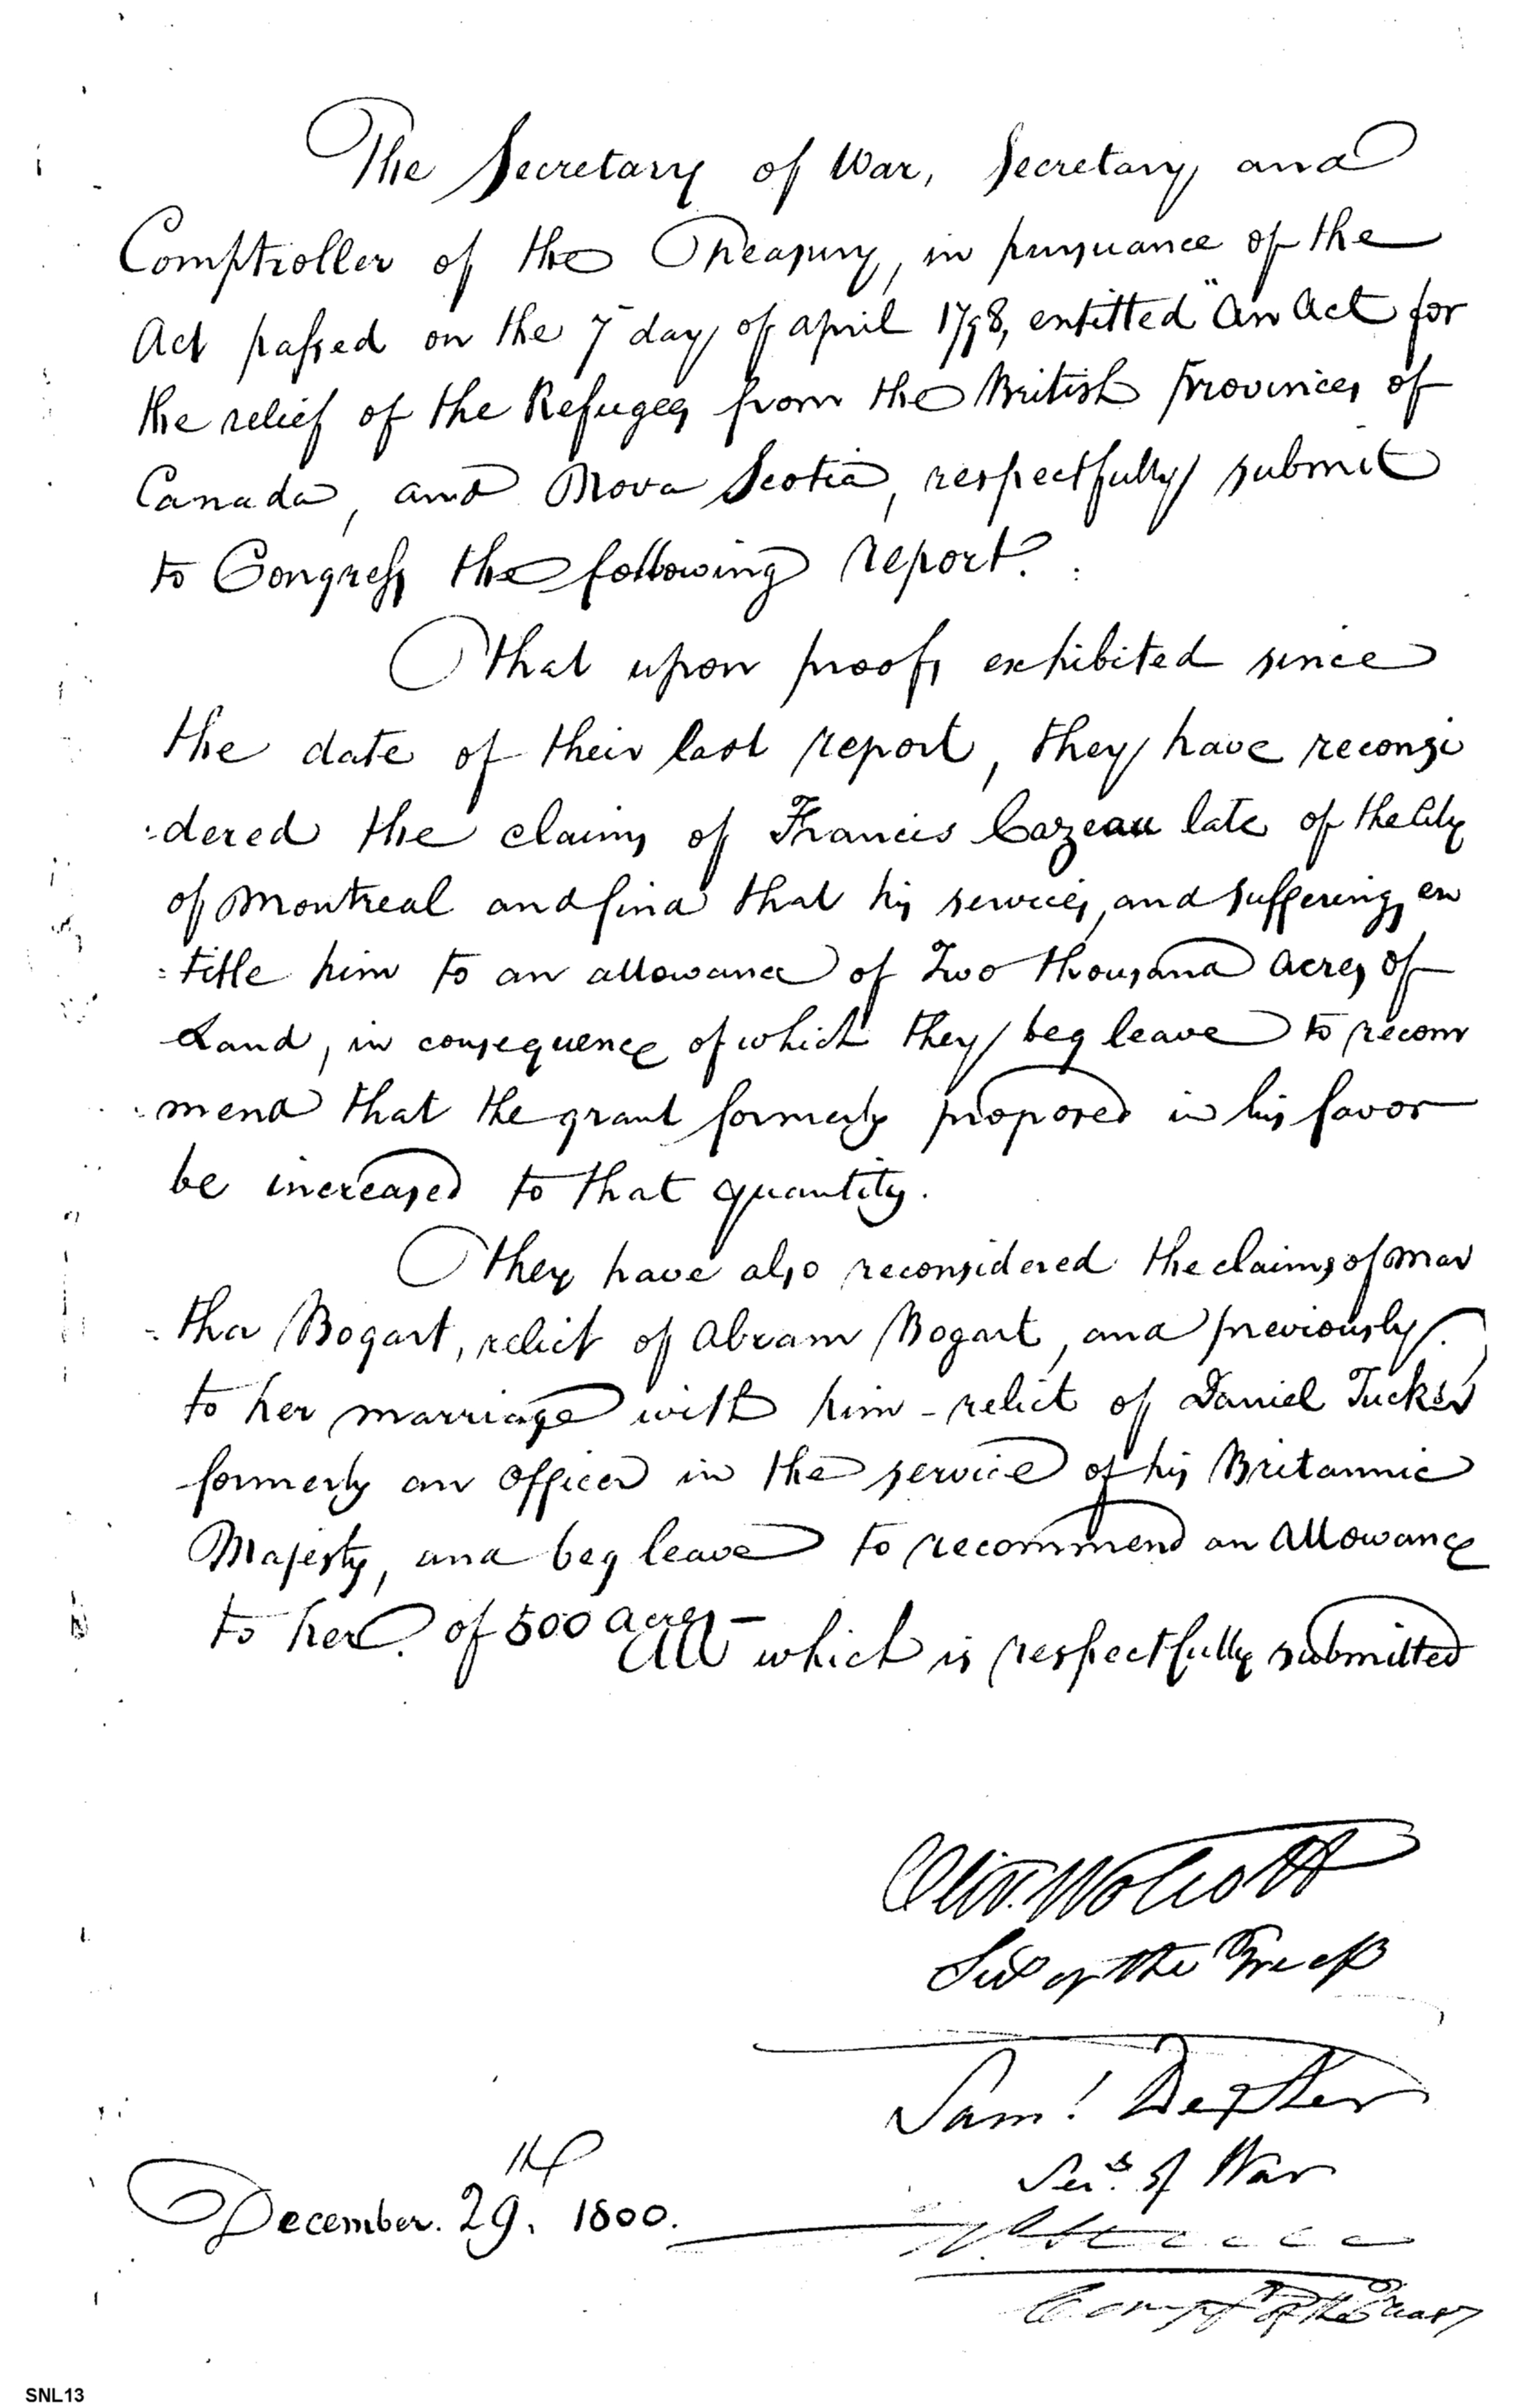 The Secretary of War, Secretary and
Comptroller of the Treasury, in pursuance of the
Act passed on the 7 day of april 1798, entitled "An Act for
the relief of the Refugees from the British provinces of
Canada, and Nova Scotia, respectfully submit
to Congress the following report.
That upon proofs exhibited since
the date of their last report, they have reconsi
:dered the claims of Francis Cazeau late of the City
of Montreal and find that his services, and sufferings en
:title him to an allowance of Two thousand acres of
Land, in consequence of which they beg leave to recom
:mend that the grant formerly proposed in his favor
be increased to that quantity.
They have also reconsidered the claims of Mar
:tha Bogart, relict of Abram Bogart, and previously
to her marriage with him - relict of Daniel Tucker
formerly an Officer in the service of his Britannic
Majesty, and beg leave to recommend an Allowance
to her of 500 acres -
All which is respectfully submitted
Oliv. Wolcott
Sec of the Treas
Saml Dexter
Secy of War
December. 29th. 1800.
Compt of the Treasy
SNL13